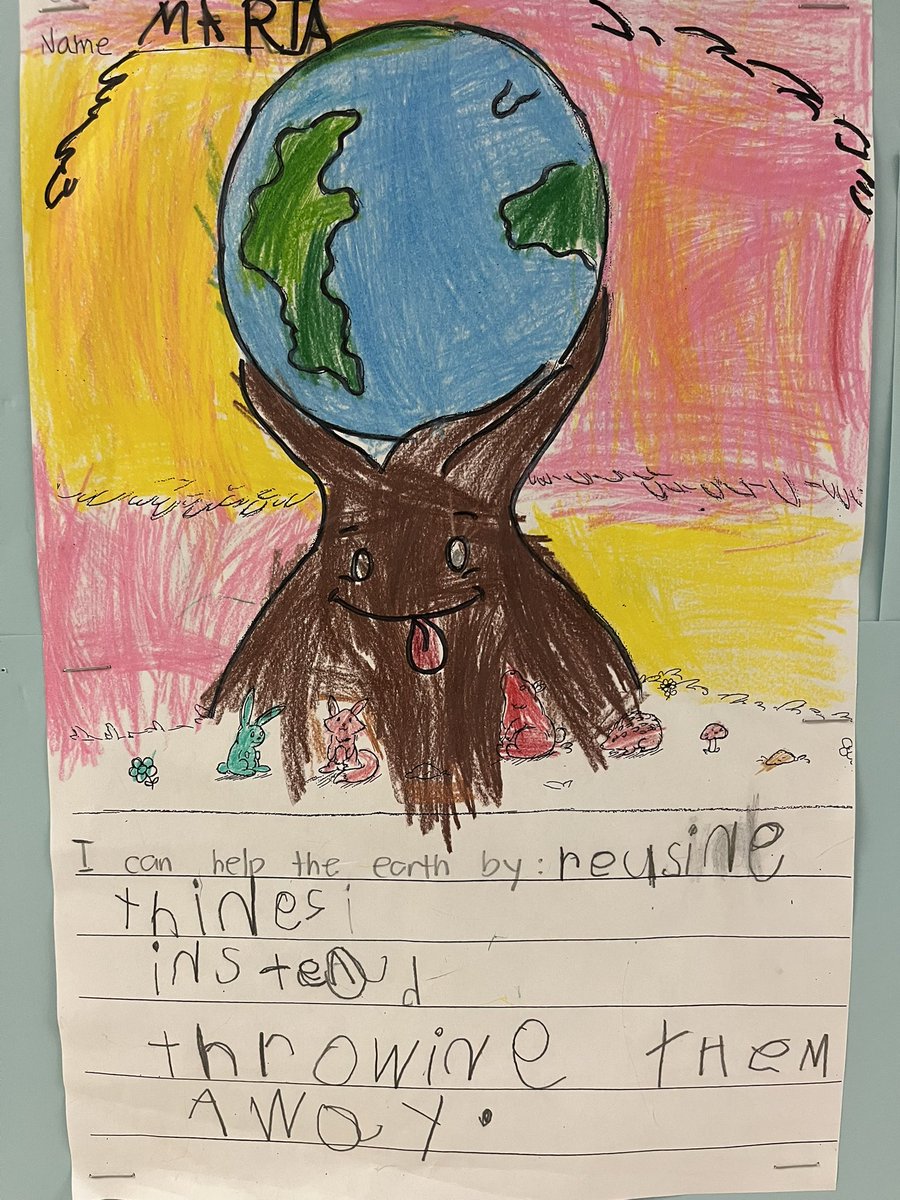 Name MARIA
I can help the earth by: reusine
thinesi
instead
throwine them
AWay.